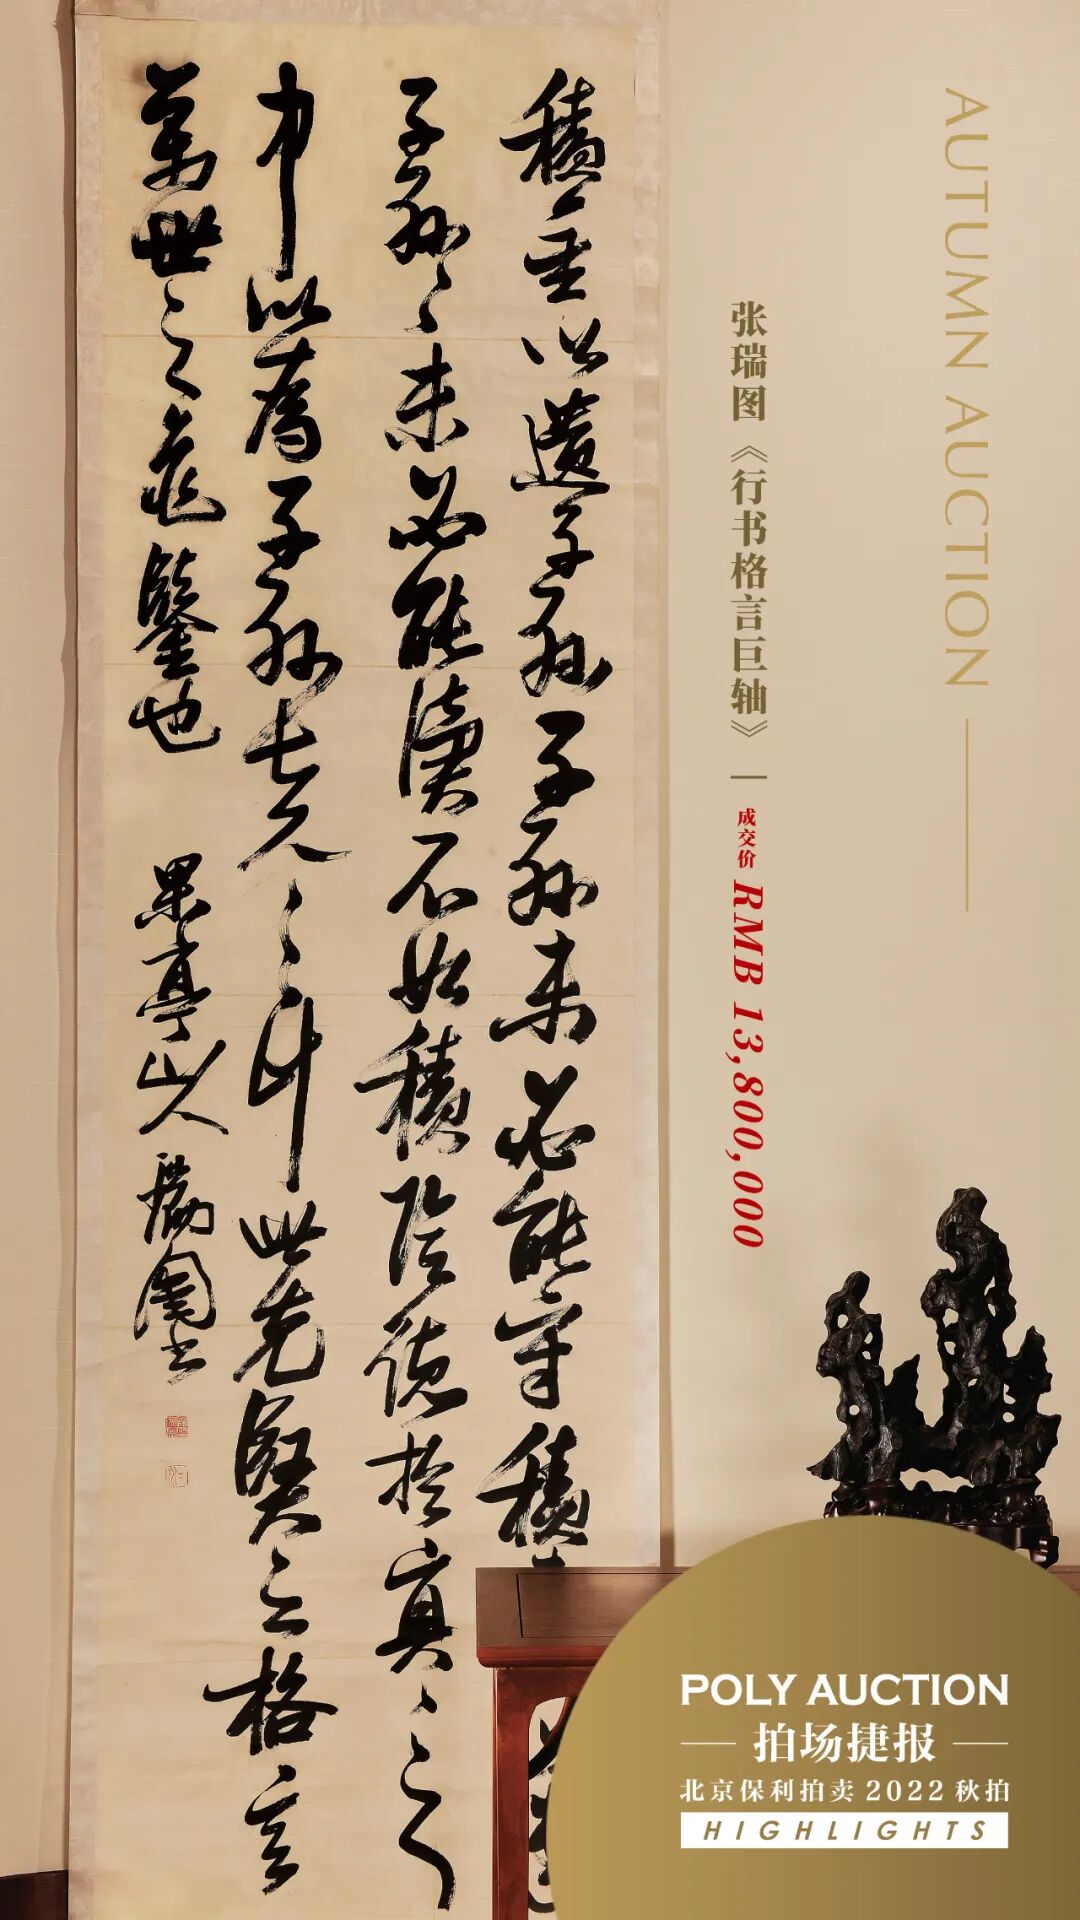 積金以遺子孫子孫未必能守積
子孫〻未必能讀不如積陰德於冥〻之
中以為子孫長久之計此先賢之格言
萬世之龜鑒也 果亭山人瑞圖書
张瑞图《行书格言巨轴》
成交价 RMB 13,800,000
AUTUMN AUCTION
POLY AUCTION
拍场捷报
北京保利拍卖 2022 秋拍
HIGHLIGHTS